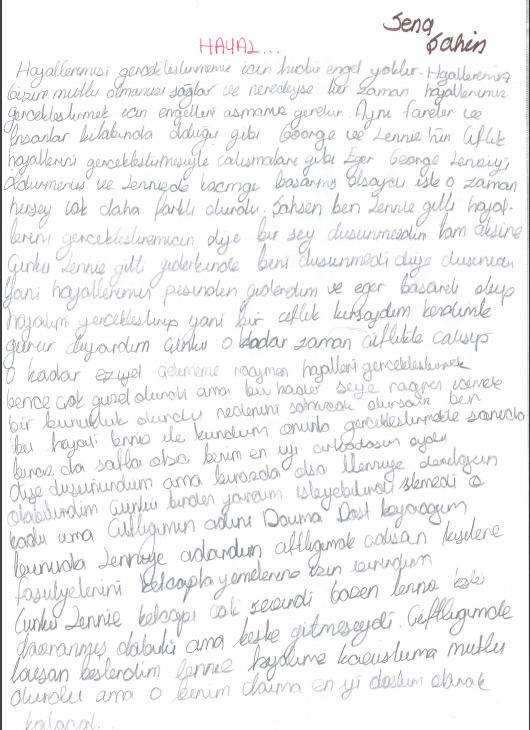 Sena
Şahin
HAYAL...
Hayallerimizi gerçekleştirmemiz için hiçbir engel yoktur. Hayallerimiz
bizim mutlu olmamızı sağlar ve neredeyse her zaman hayallerimizi
gerçekleştirmek için engelleri aşmamız gerekir. Aynı fareler ve
insanlar kitabında olduğu gibi George ve Lennie'nin çiftlik
hayallerini gerçekleştirmesiyle çalışmaları gibi Eğer George Lennie'yi
öldürmemiş ve Lennie'de kaçmayı başarmış olsaydı işte o zaman
herşey çok daha farklı olurdu. Şahsen ben Lennie gitti hayal-
lerimi gerçekleştiremicem diye bir şey düşünmezdim tam aksine
çünkü Lennie gitti giderkende beni düşünmedi diye düşünüp
yani hayallerimin peşinden giderdim ve eğer başarılı olup
hayalimi gerçekleştirip yani bir çiftlik kursaydım kendimle
gurur duyardım çünkü o kadar zaman çiftlikte çalışıp
o kadar eziyet çekmeme rağmen hayalleri gerçekleştirmek
bence çok güzel olurdu ama bu kadar şeye rağmen içimde
bir burukluk olurdu nedenini soracak olursan ben
bu hayali lennie ile kurdum onunla gerçekleştirmekte
biraz da safta olsa benim en iyi arkadaşım
diye düşünürdüm ama birazda olsa
çünkü benden yardım isteyebilirdi istemedi o
ama çiftliğimin adını Daima Dost koyacağım
bunuda Lennie'ye adardım çiftliğimde çalışan kişilere
fasulyelerini ketçapla yemelerine izin verirdim
çünkü Lennie ketçapı çok severdi bazen lennie
davranmış olabilir ama keşke gitmeseydi. Çiftliğimde
tavşan beslerdim lennie hayalime kavuştuma mutlu
olurdu ama o benim daima en iyi dostum olarak
kalacak..